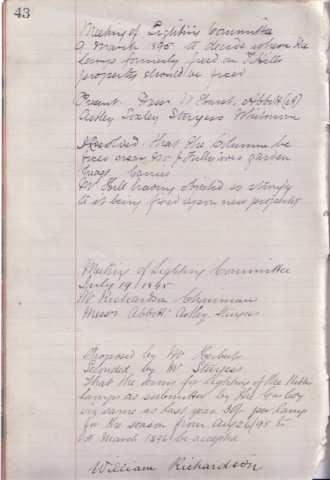 43
Meeting of Lighting Committee
9 March 1895 to decide where the
Lamps formerly fixed on Hills
property should be fixed
Present. Messrs W Hurst, Abbott (A)
Astley Sturgess Whitmore
Resolved. that the Column be
fixed near Mr J garden
Carried
Mr Hill having objected so strongly
to it being fixed upon new property
Meeting of Lighting Committee
July 19 1895
Mr Richardson Chairman
Messrs Abbott. Astley Sturgess.
Proposed by Mr Herbert
Seconded by Mr Sturgess
That the terms for Lighting of the Public
Lamps as submitted by the Gas Coy
viz same as last year 30/- per lamp
for the season from Aug 26/95 to
March 1896 be accepted
William Richardson